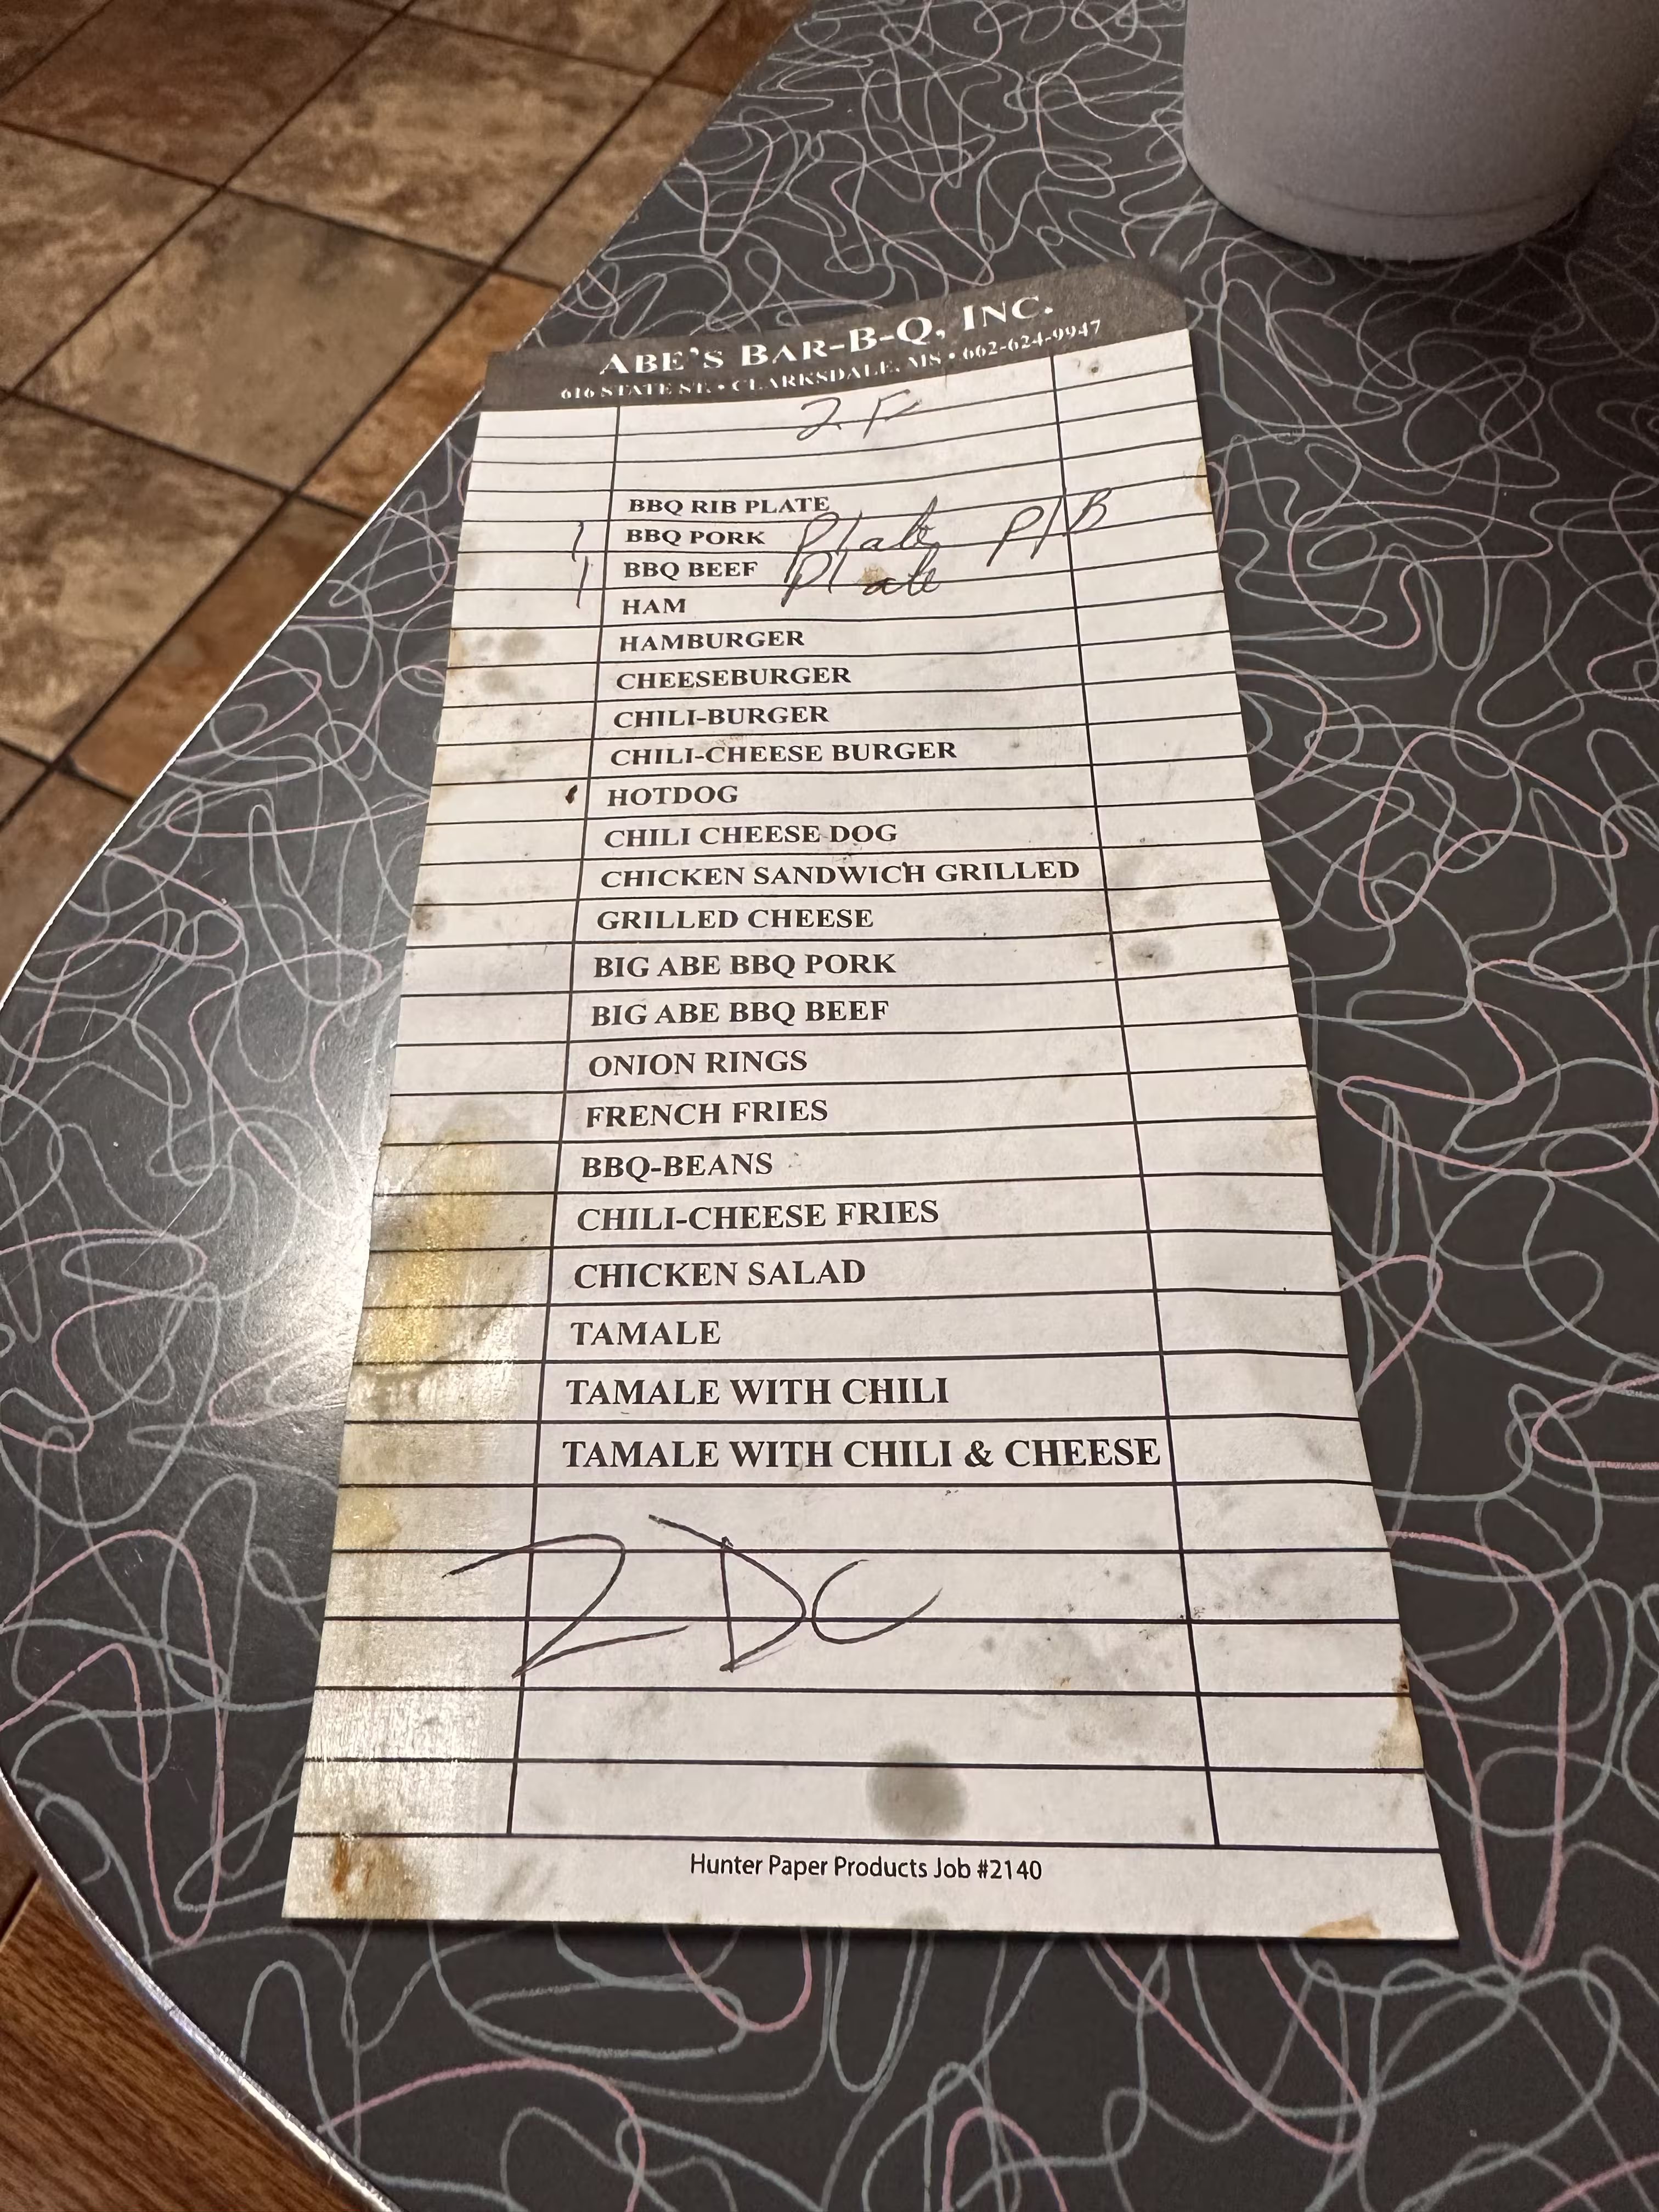 ABE'S BAR-B-Q, INC.
616 STATE ST. • CLARKSDALE, MS • 662-624-9947
2 F
BBQ RIB PLATE
1 BBQ PORK Plate P/B
1 BBQ BEEF Plate
HAM
HAMBURGER
CHEESEBURGER
CHILI-BURGER
CHILI-CHEESE BURGER
HOTDOG
CHILI CHEESE DOG
CHICKEN SANDWICH GRILLED
GRILLED CHEESE
BIG ABE BBQ PORK
BIG ABE BBQ BEEF
ONION RINGS
FRENCH FRIES
BBQ-BEANS
CHILI-CHEESE FRIES
CHICKEN SALAD
TAMALE
TAMALE WITH CHILI
TAMALE WITH CHILI & CHEESE
2 DC
Hunter Paper Products Job #2140